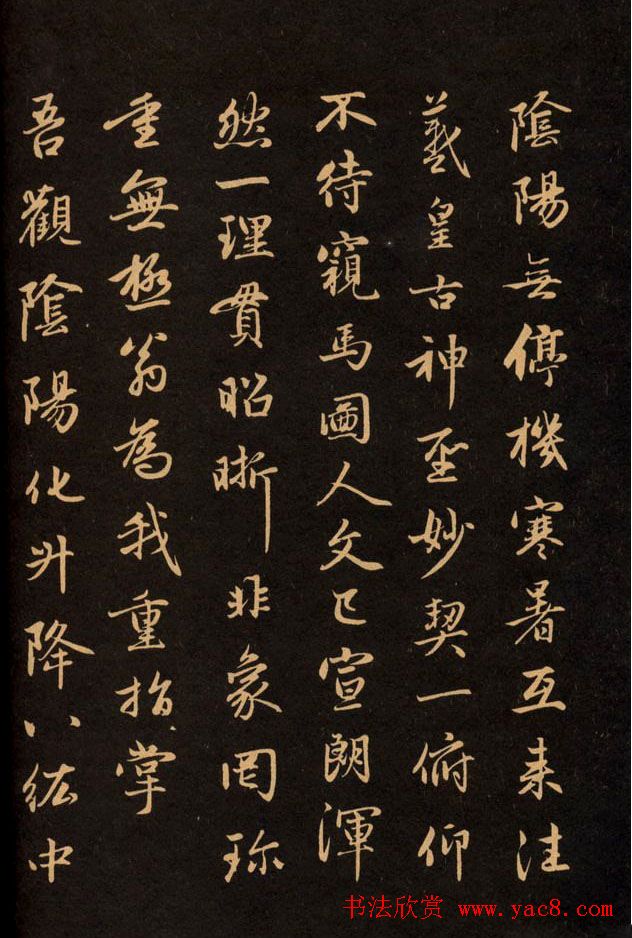 陰陽无停機寒暑互来往
羲皇古神聖妙契一俯仰
不待窺馬圖人文已宣朗渾
然一理貫昭晰非象罔珎
重無極翁為我重指掌
吾觀陰陽化升降八紘中
书法欣赏 www.yac8.com